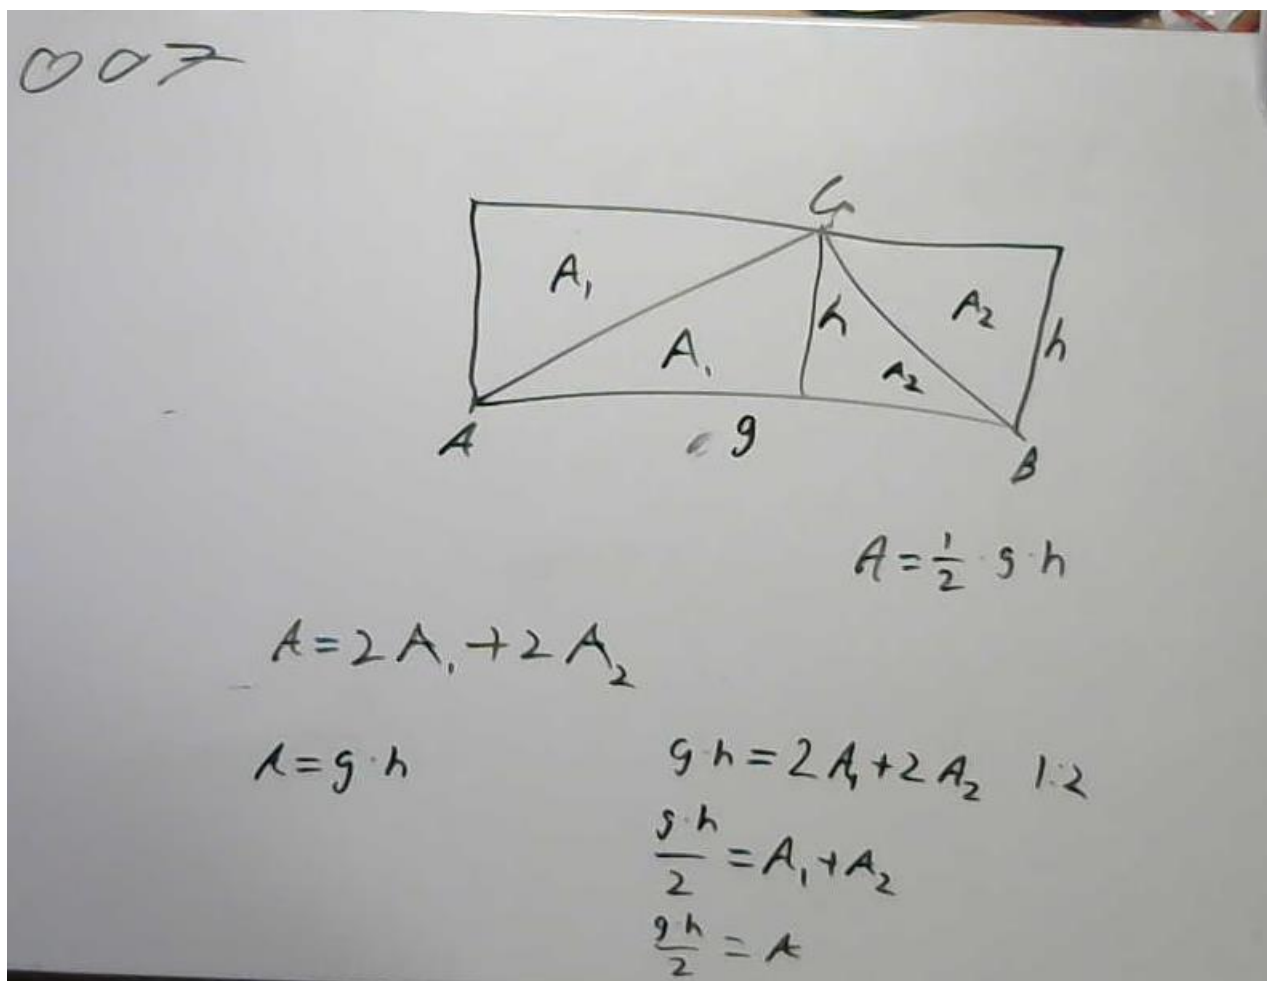 007
G
A₁
A₂
h
h
A₁
A₂
g
A
B
A = 1/2 · g · h
A = 2A₁ + 2A₂
A = g · h
g · h = 2A₁ + 2A₂ |:2
g · h / 2 = A₁ + A₂
g · h / 2 = A